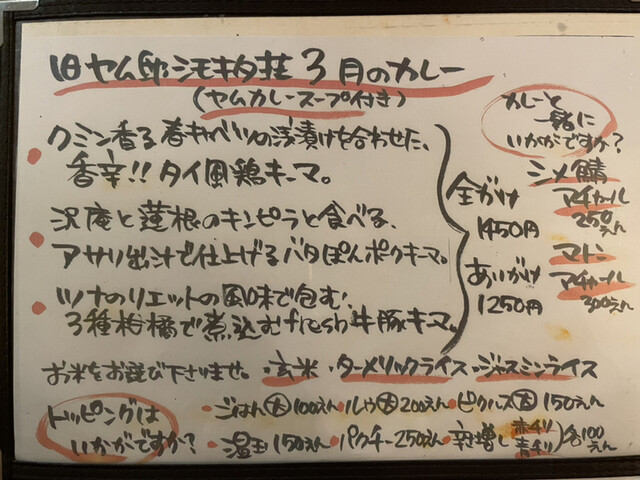 旧ヤム邸シモキタ荘 3月のカレー
(ヤムカレースープ付き)
・クミン香る春キャベツの浅漬けを合わせた、
香辛!!タイ風鶏キーマ。
・沢庵と蓮根のキンピラと食べる、
アサリ出汁で仕上げるバタぽんポークキーマ。
・ツナのリエットの風味で包む!
3種柑橘で煮込むfresh牛豚キーマ。
全がけ
1450円
あいがけ
1250円
カレーと
一緒に
いかがですか?
シメ鯖
アチャール
250えん
マトン
アチャール
300えん
お米をお選び下さいませ。・玄米・ターメリックライス・ジャスミンライス
トッピングは
いかがですか?
・ごはん大100えん・ルゥ大200えん・ピクルス大150えん
・温玉150えん・パクチー250えん・辛増し 赤チリ 青チリ)各100えん